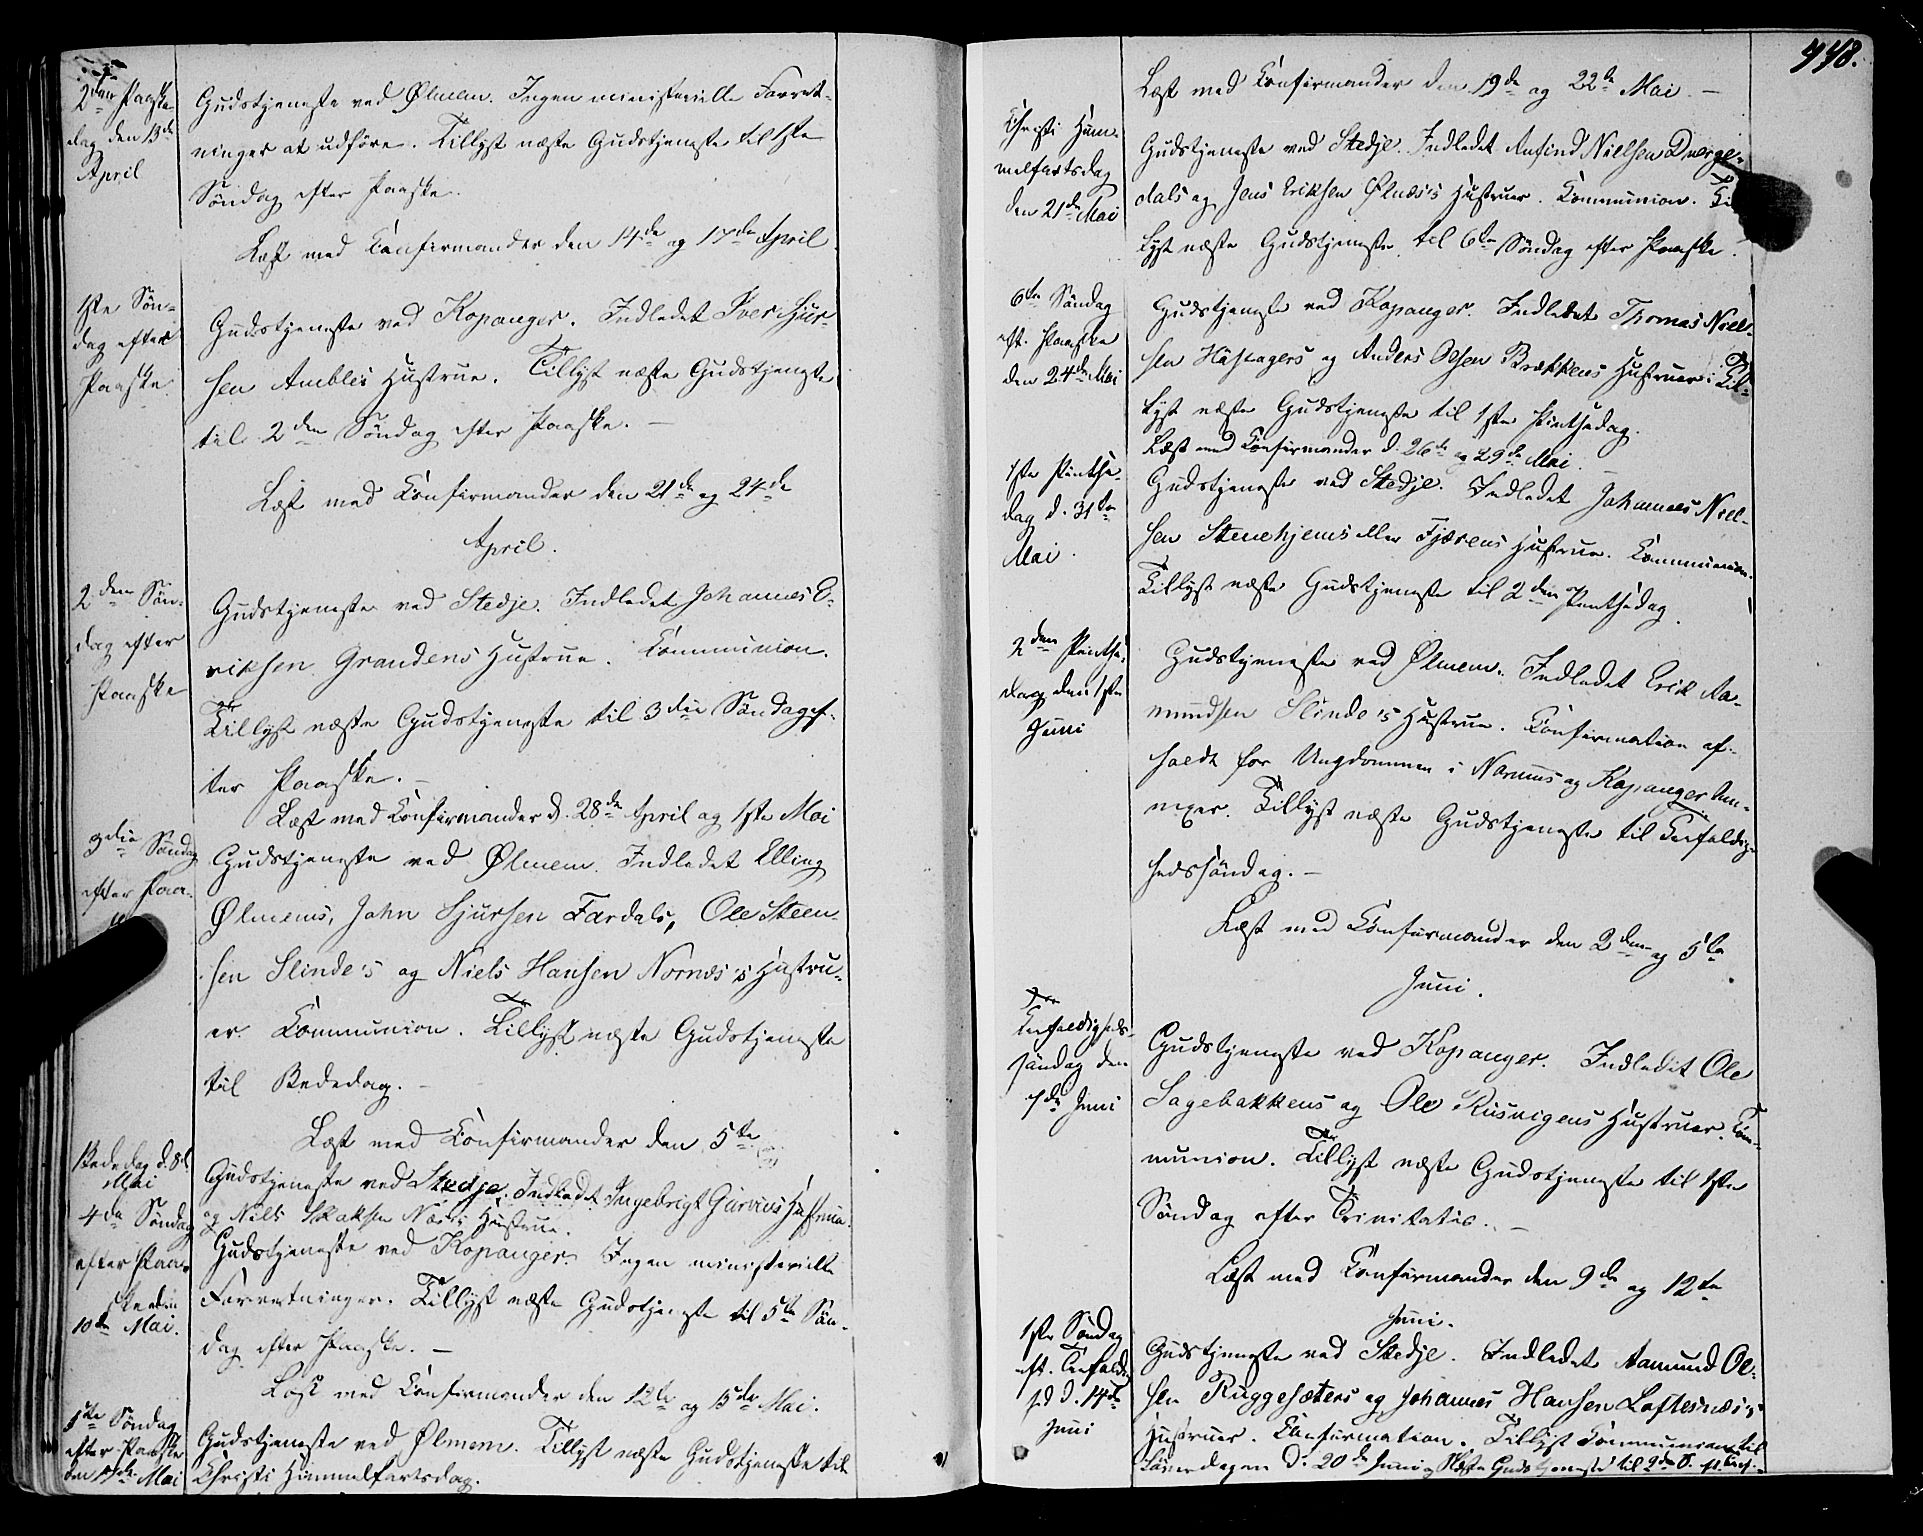 2den Paaske-
dag den 13de
April
Gudstjeneste ved Ølmem. Ingen ministerielle Forret-
ninger at udføre. Tillyst næste Gudstjeneste til 1ste
Søndag efter Paaske.
Læst med Confirmander den 14de og 17de April
1ste Søn-
dag efter
Paaske
Gudstjeneste ved Kopanger. Indledet Iver Sjur-
sen Ambles Hustrue. Tillyst næste Gudstjeneste
til 2den Søndag efter Paaske. —
Læst med Confirmander den 21de og 24de
April.
2den Søn-
dag efter
Paaske
Gudstjeneste ved Stedje. Indledet Johannes E-
riksen Grandens Hustrue. Communion.
Tillyst næste Gudstjeneste til 3die Søndag ef-
ter Paaske. —
Læst med Confirmander d. 28de April og 1ste Mai
3die Søndag
efter Paa-
Gudstjeneste ved Ølmem. Indledet Elling
Ølmems, John Sjursen Fardals, Ole Steen-
sen Slinde's og Niels Hansen Nornæs's Hustru-
er. Communion. Tillyst næste Gudstjeneste
til Bededag. —
Læst med Confirmander den 5te
Bededag d. 8de
Mai
Gudstjeneste ved Stedje. Indledet Ingebrigt Hustrue
og Niels Hustrue.
4de Søndag
efter Paa-
ske den
10de Mai.
Gudstjeneste ved Kopanger. Ingen ministerielle
Forretninger. Tillyst næste Gudstjeneste til 5te Søn-
dag efter Paaske. —
Læst med Confirmander den 12te og 15de Mai.
5te Søndag
efter Paaske
den 17de Mai
Gudstjeneste ved Ølmem. Tillyst næste Gudstjeneste til
Christi Himmelfartsdag.
448.
Læst med Confirmander den 19de og 22de Mai. —
Christi Him-
melfartsdag
den 21de Mai
Gudstjeneste ved Stedje. Indledet Anfind Nielsen Dverge-
dals og Jens Eriksen Ølnæs's Hustruer. Communion. Til-
lyst næste Gudstjeneste til 6te Søndag efter Paaske.
6te Søndag
eft. Paaske
den 24de Mai
Gudstjeneste ved Kopanger. Indledet Thomas Niel-
sen Husagers og Anders Olsen Brækkens Hustruer. Til-
lyst næste Gudstjeneste til 1ste Pintsedag.
Læst med Confirmander d. 26de og 29de Mai.
1ste Pintse-
dag d. 31te
Mai.
Gudstjeneste ved Stedje. Indledet Johannes Niel-
sen Stenehjems eller Fjærens Hustrue. Communion.
Tillyst næste Gudstjeneste til 2den Pintsedag.
2den Pintse-
dag den 1ste
Juni
Gudstjeneste ved Ølmem. Indledet Erik Aa-
mundsen Slinde's Hustrue. Confirmation af-
holdt for Ungdommen i Norums og Kopanger An-
nexer. Tillyst næste Gudstjeneste til Trefoldig-
hedssøndag. —
Læst med Confirmander den 2den og 5te
Juni.
Trefoldigheds-
søndag den
7de Juni
Gudstjeneste ved Kopanger. Indledet Ole
Sagebakkens og Ole Husvigens Hustruer. Com-
munion. Tillyst næste Gudstjeneste til 1ste
Søndag efter Trinitatis. —
Læst med Confirmander den 9de og 12te
Juni.
1ste Søndag
eft. Trefoldig-
hd d. 14de
Juni
Gudstjeneste ved Stedje. Indledet Aamund Ol-
sen Ruggesæters og Johannes Hansen Loftesnæs's
Hustruer. Confirmation. Tillyst Communion til
Løverdagen d. 20de Juni og Næste Gudstjeneste til 2den S. eft. Tref.